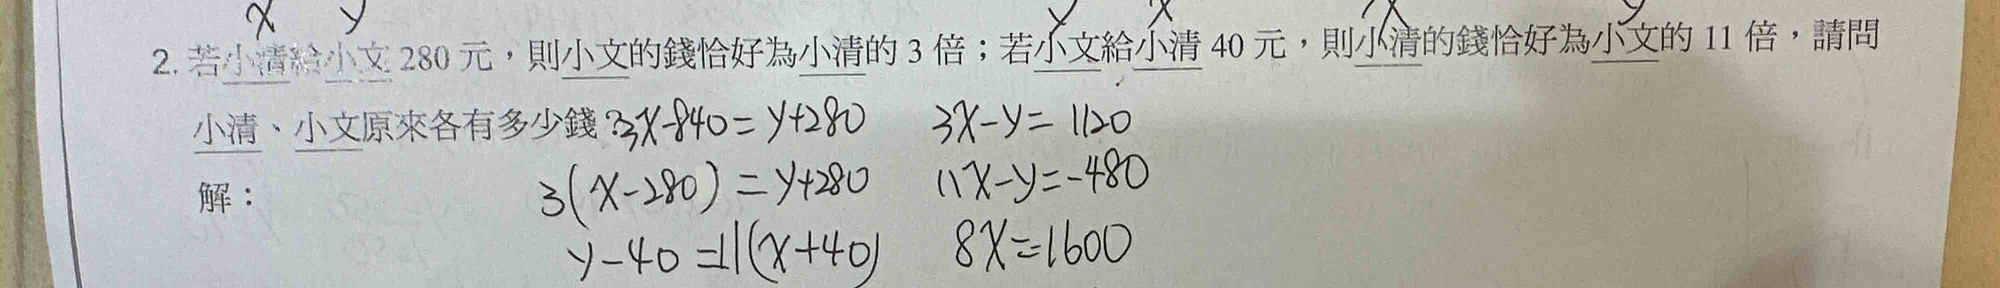 x y y x x y
2. 若小清給小文 280 元，則小文的錢恰好為小清的 3 倍；若小文給小清 40 元，則小清的錢恰好為小文的 11 倍，請問
小清、小文原來各有多少錢？3x-840=y+280 3x-y=1120
解： 3(x-280)=y+280 11x-y=-480
y-40=11(x+40) 8x=1600